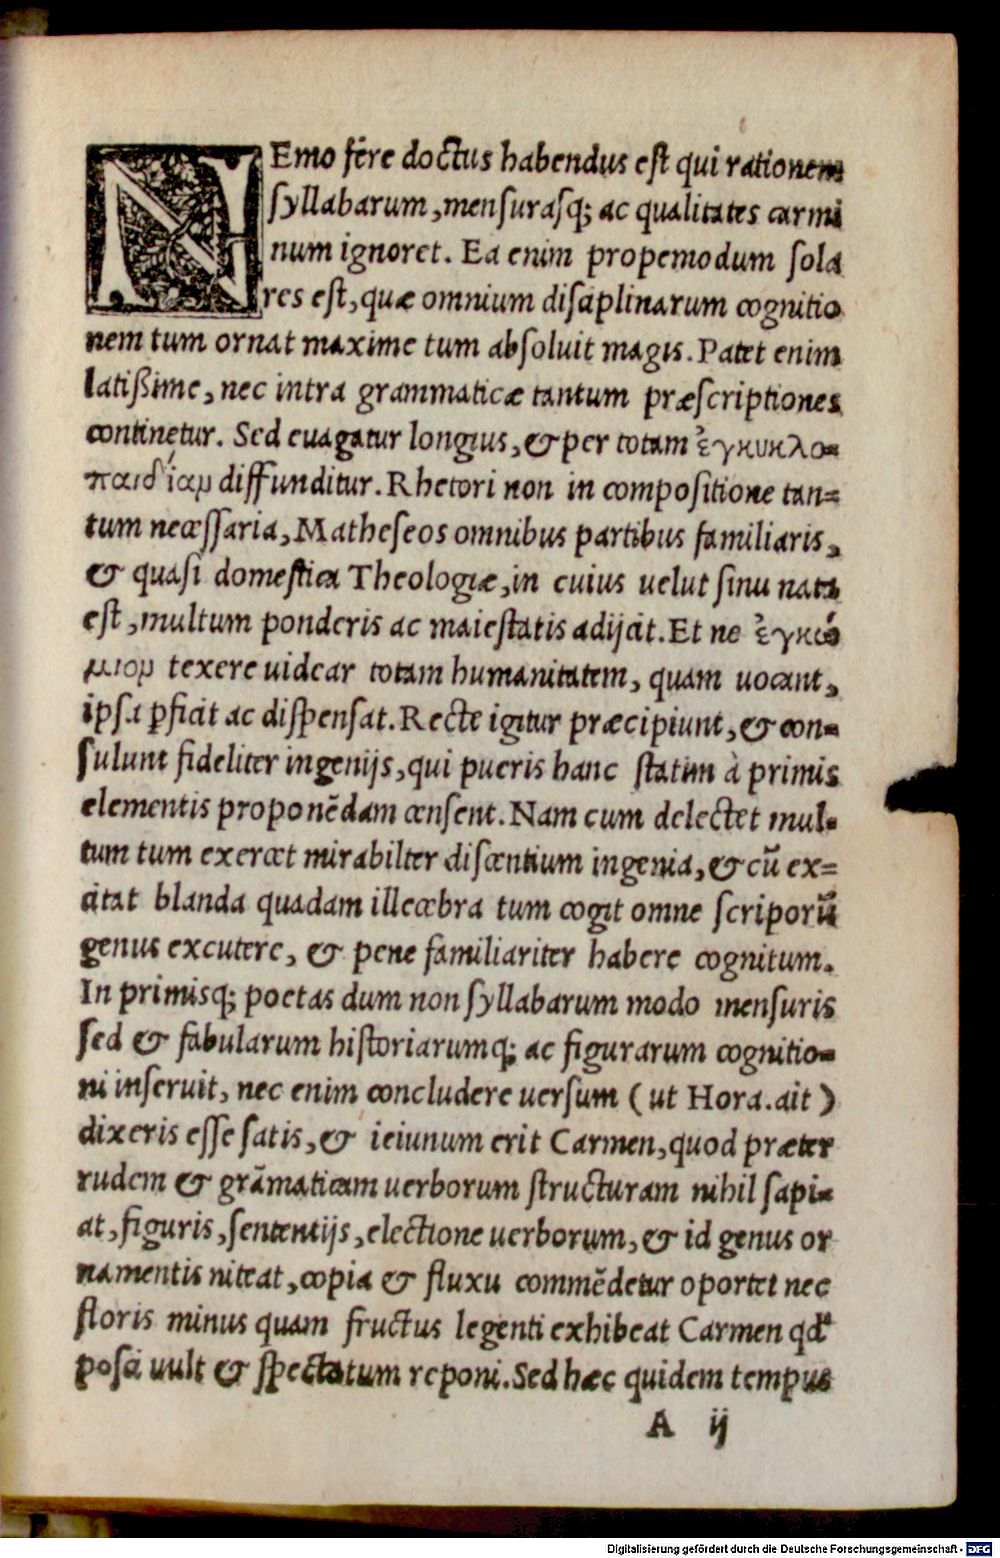 NEmo fere doctus habendus est qui rationem
syllabarum, mensurasq; ac qualitates carmi
num ignoret. Ea enim propemodum sola
res est, quæ omnium disciplinarum cognitio
nem tum ornat maxime tum absoluit magis. Patet enim
latißime, nec intra grammaticæ tantum præscriptiones
continetur. Sed euagatur longius, & per totam ἐγκυκλο=
παιδίαμ diffunditur. Rhetori non in compositione tan=
tum necessaria, Matheseos omnibus partibus familiaris,
& quasi domestica Theologiæ, in cuius uelut sinu nata
est, multum ponderis ac maiestatis adijcit. Et ne ἐγκώ
μιομ texere uidear totam humanitatem, quam uocant,
ipsa ꝑficit ac dispensat. Recte igitur præcipiunt, & con=
sulunt fideliter ingenijs, qui pueris hanc statim à primis
elementis proponẽdam censent. Nam cum delectet mul=
tum tum exercet mirabilter discentium ingenia, & cũ ex=
citat blanda quadam illecebra tum cogit omne scriporũ
genus excutere, & pene familiariter habere cognitum.
In primisq; poetas dum non syllabarum modo mensuris
sed & fabularum historiarumq; ac figurarum cognitio=
ni inseruit, nec enim concludere uersum ( ut Hora. ait )
dixeris esse satis, & ieiunum erit Carmen, quod præter
rudem & grãmaticam uerborum structuram nihil sapi=
at, figuris, sententijs, electione uerborum, & id genus or
namentis niteat, copia & fluxu commẽdetur oportet nec
floris minus quam fructus legenti exhibeat Carmen qd'
posci uult & spectatum reponi. Sed hæc quidem tempus
A ij
Digitalisierung gefördert durch die Deutsche Forschungsgemeinschaft - DFG